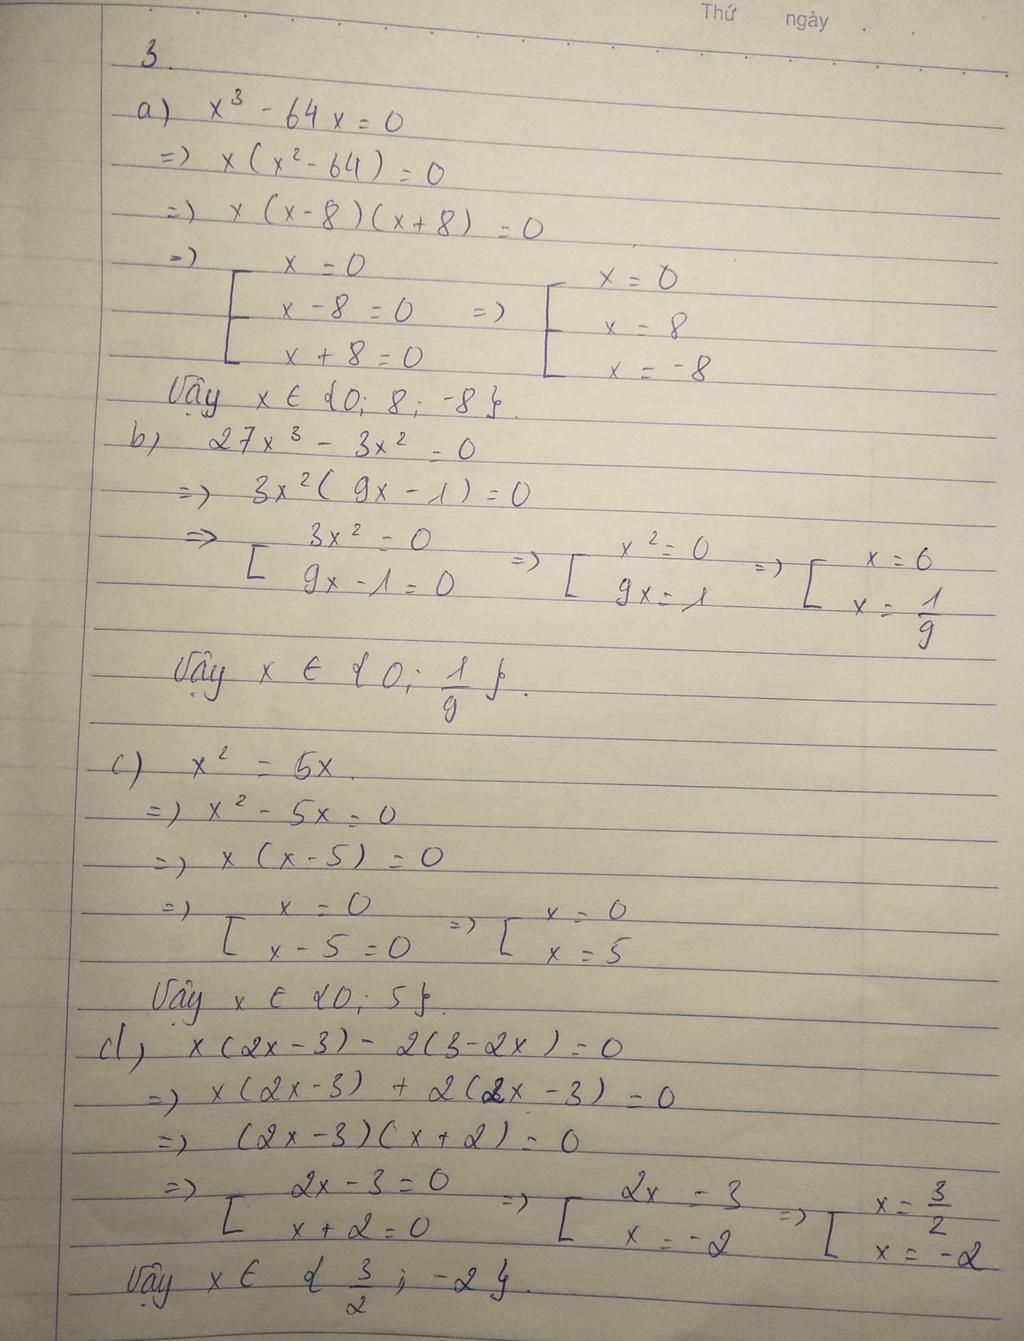 Thứ ngày
3.
a) x³ - 64x = 0
=> x(x² - 64) = 0
=> x(x - 8)(x + 8) = 0
=> [ x = 0 [ x = 0
x - 8 = 0 => x = 8
x + 8 = 0 x = -8
Vậy x ∈ {0; 8; -8}.
b) 27x³ - 3x² = 0
=> 3x²(9x - 1) = 0
=> [ 3x² = 0 => [ x² = 0 => [ x = 0
9x - 1 = 0 9x = 1 x = 1/9
Vậy x ∈ {0; 1/9}.
c) x² = 5x.
=> x² - 5x = 0
=> x(x - 5) = 0
=> [ x = 0 => [ x = 0
x - 5 = 0 x = 5
Vậy x ∈ {0; 5}.
d) x(2x - 3) - 2(3 - 2x) = 0
=> x(2x - 3) + 2(2x - 3) = 0
=> (2x - 3)(x + 2) = 0
=> [ 2x - 3 = 0 => [ 2x = 3 => [ x = 3/2
x + 2 = 0 x = -2 x = -2
Vậy x ∈ {3/2; -2}.